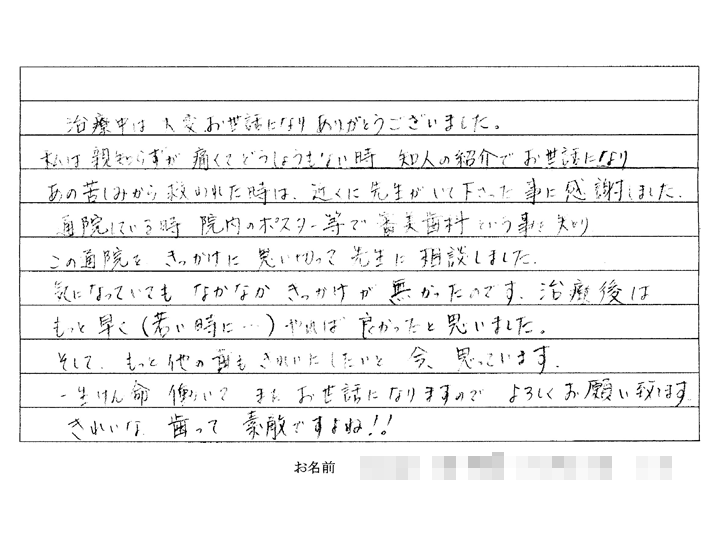 治療中は 大変 お世話になり ありがとうございました。
私は 親知らずが 痛くて どうしようもない時 知人の紹介で お世話になり
あの苦しみから 救われた時は、近くに 先生がいて下さった 事に 感謝しました.
通院している時 院内のポスター等で 審美歯科 という事を 知り
この通院を きっかけに 思い切って 先生に 相談しました.
気になっていても なかなか きっかけが 無かったのです. 治療後は
もっと 早く (若い時に…) やれば 良かったと 思いました。
そして、もっと 他の 歯も きれいにしたいと 今、思っています.
一生けん命 働いて また お世話になりますので よろしくお願い致します.
きれいな 歯って 素敵ですよね!!
お名前